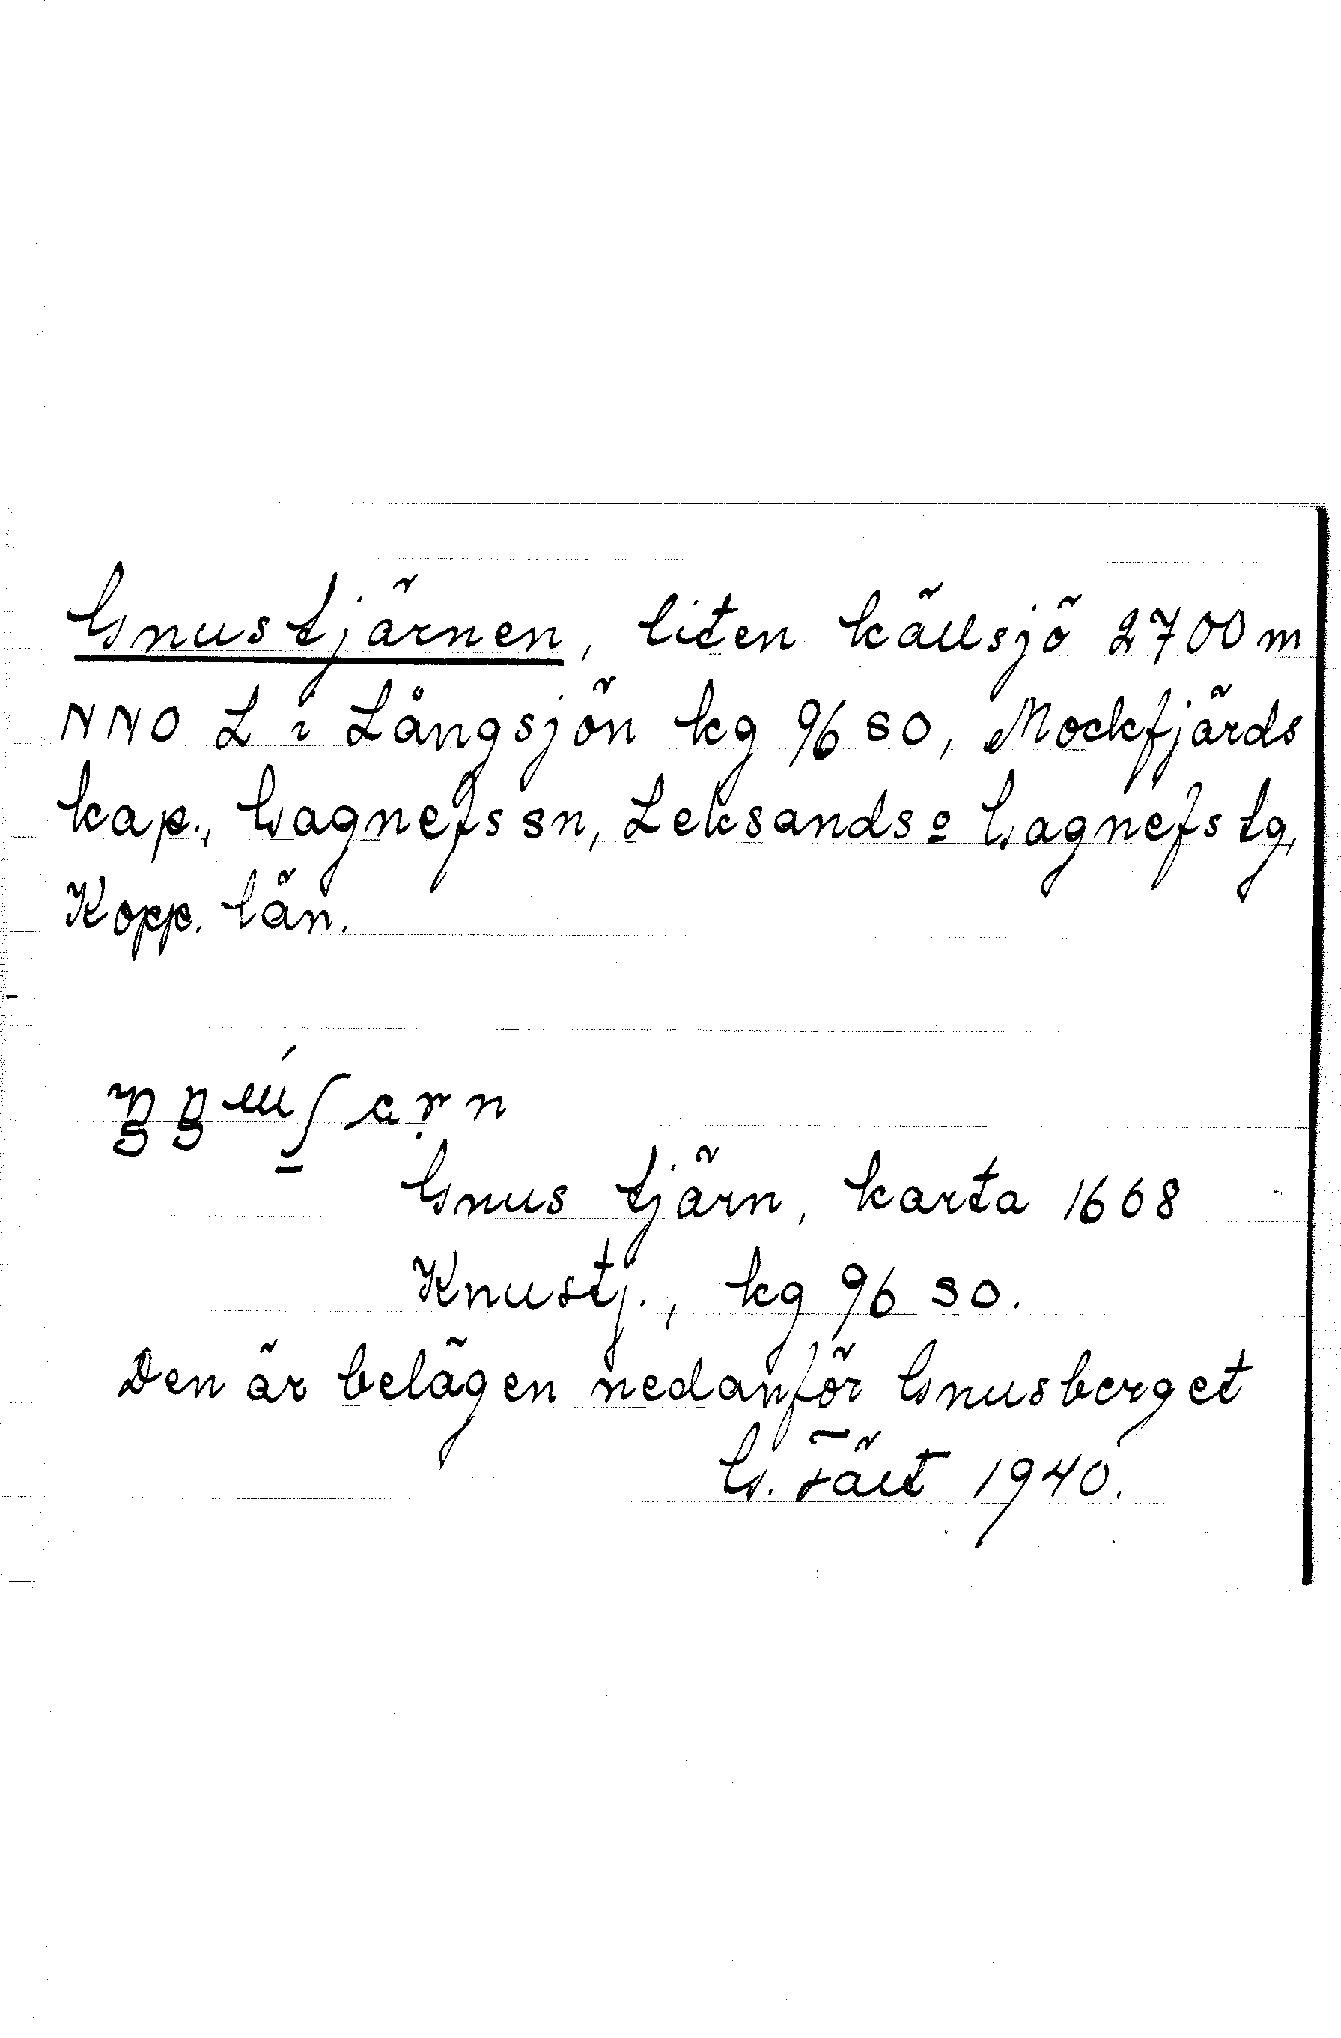 Gnustjärnen, liten källsjö 2700 m
NNO L i Långsjön kg 96 SO, Mockfjärds
kap., Gagnefs sn, Leksands o Gagnefs tg,
Kopp. län.
Gnus tjärn, karta 1668
Knustj., kg 96 SO.
Den är belägen nedanför Gnusberget
G. Fält 1940.